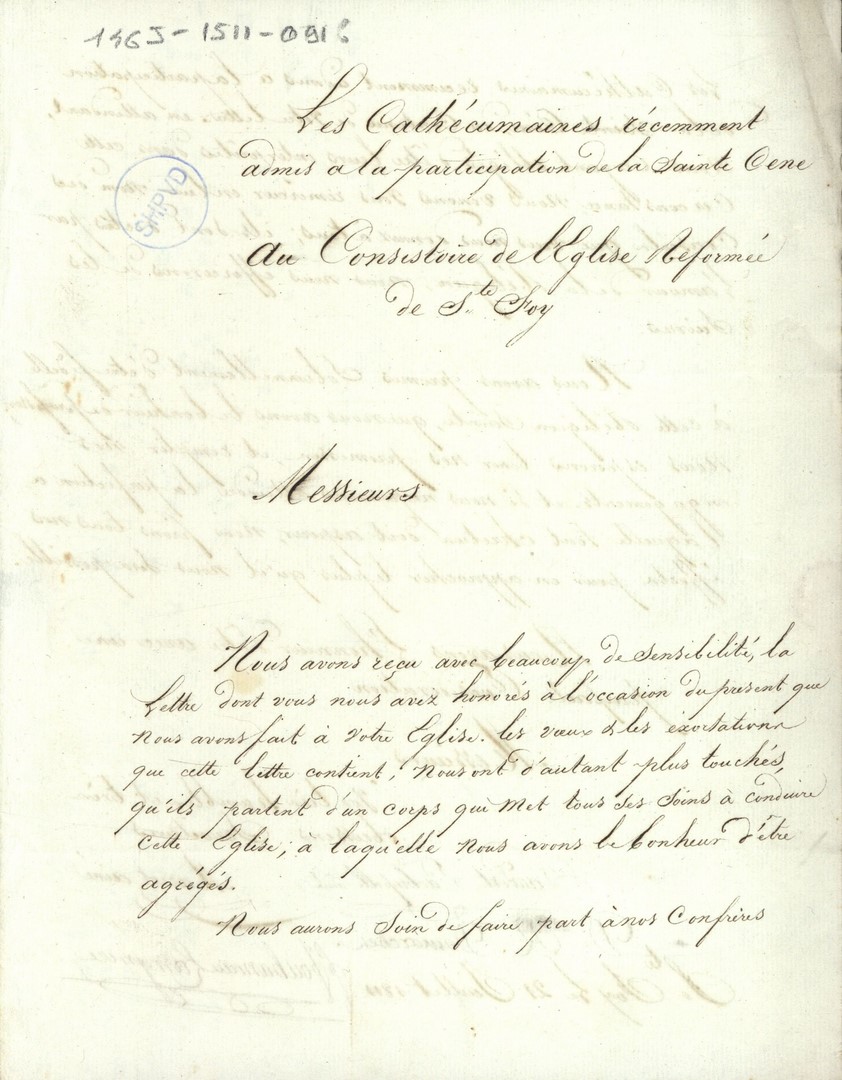 1465-1511-091
SHPVD
Les Cathécumaines récemment
admis a la participation de la Sainte Cene
Au Consistoire de l'Eglise Reformée
de S.te Foy
Messieurs
Nous avons reçu avec beaucoup de sensibilité, la
Lettre dont vous nous avez honorés à l'occasion du present que
nous avons fait à votre Eglise. les vœux & les exortations
que cette lettre contient, nous ont d'autant plus touchés,
qu'ils partent d'un corps qui met tous ses soins à conduire
cette Eglise, à laqu'elle nous avons le bonheur d'être
agrégés.
Nous aurons soin de faire part à nos Confrères